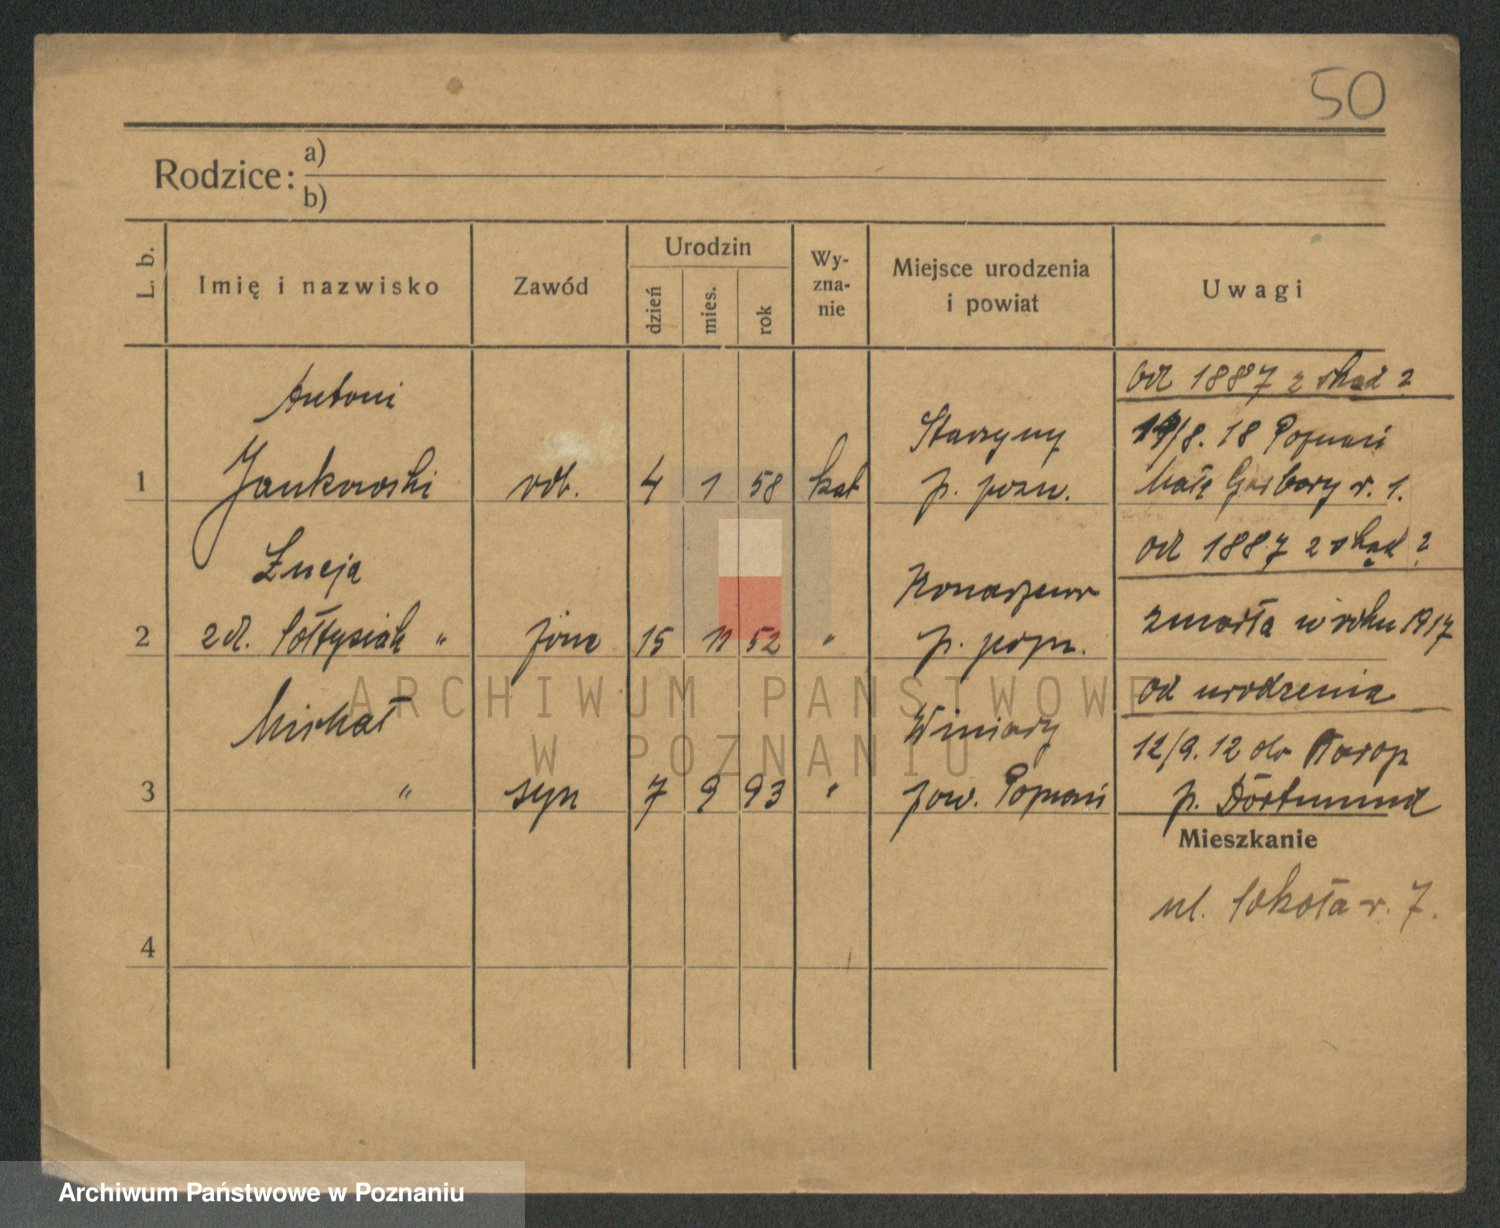 50
Rodzice: a)
b)
L. b.
Imię i nazwisko
Zawód
Urodzin
dzień
mies.
rok
Wy-
zna-
nie
Miejsce urodzenia
i powiat
Uwagi
Antoni
1 Jankowski
rob.
4 1 58
kat
p. pozn.
od 1887 z skąd?
/8. 18 Poznań
Małe Garbary r. 1.
Łucja
2 zd. Sołtysiak "
żona
15 11 52
"
p. pozn.
od 1887 z skąd?
zmarła w roku 1917
Michał
3 "
syn
7 9 93
"
Winiary
pow. Poznań
od urodzenia
12/9. 12 do
p. Dortmund
Mieszkanie
ul. Sokoła r. 7.
4
ARCHIWUM PAŃSTWOWE
W POZNANIU
Archiwum Państwowe w Poznaniu